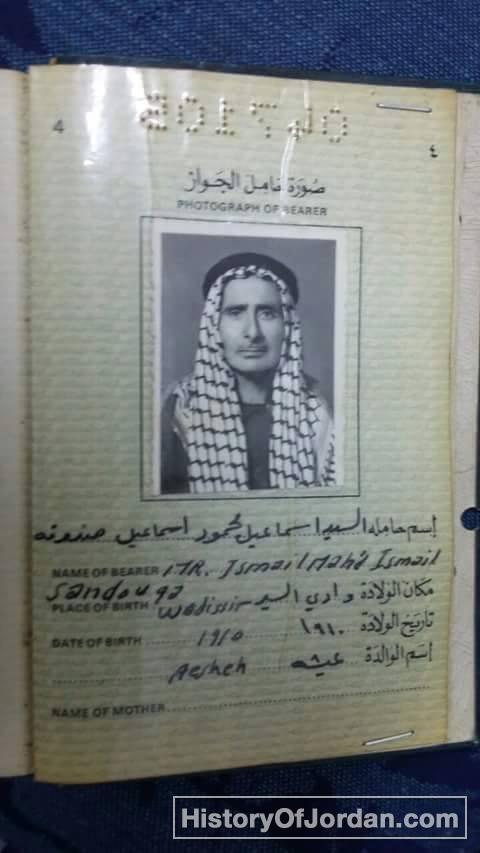 4
٤
صُورَة حَامِل الجَوَاز
PHOTOGRAPH OF BEARER
إسم حامله السيد اسماعيل محمود اسماعيل صندوقه
NAME OF BEARER MR. Ismail Mah'd Ismail
Sandouqa
مكان الولادة وادي السير
PLACE OF BIRTH Wadissir
تاريخ الولادة ١٩١٠
DATE OF BIRTH 1910
إسم الوالدة عيشه
Aesheh
NAME OF MOTHER
HistoryOfJordan.com